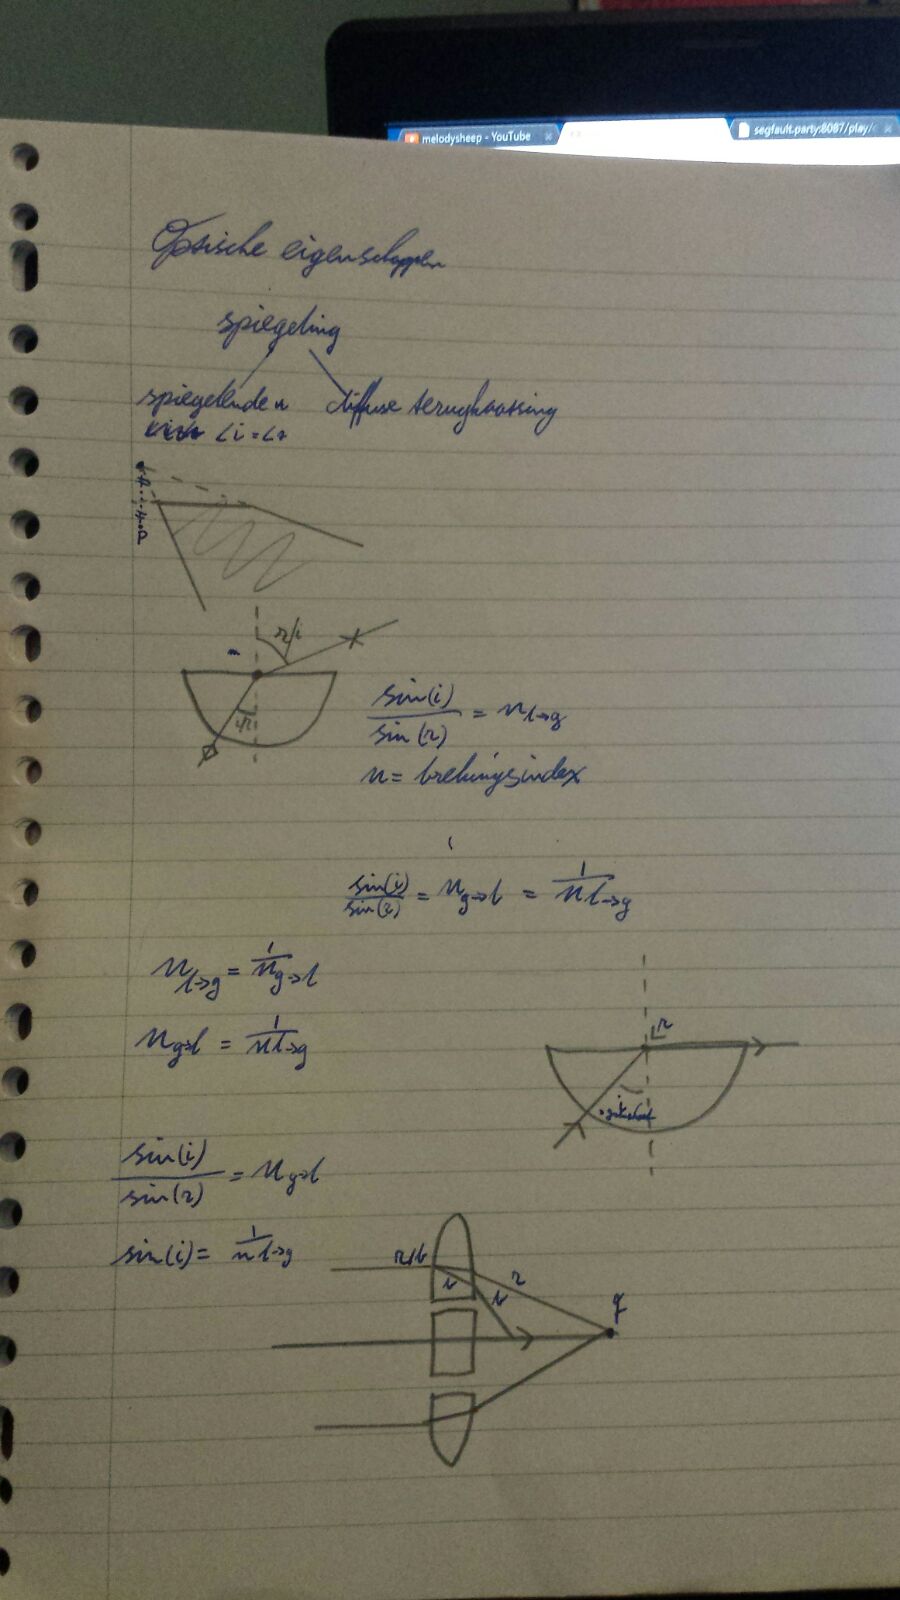 melodysheep - YouTube
segfault.party:8087/play/
Optische eigenschappen
spiegeling
diffuse terugkaatsing
∠i = ∠r
r/i
i/r
sin(i)/sin(r) = n l→g
n = brekingsindex
sin(i)/sin(r) = n g→l = 1/n l→g
n l→g = 1/n g→l
n g→l = 1/n l→g
r
i
sin(i)/sin(r) = n g→l
sin(i) = 1/n l→g
r